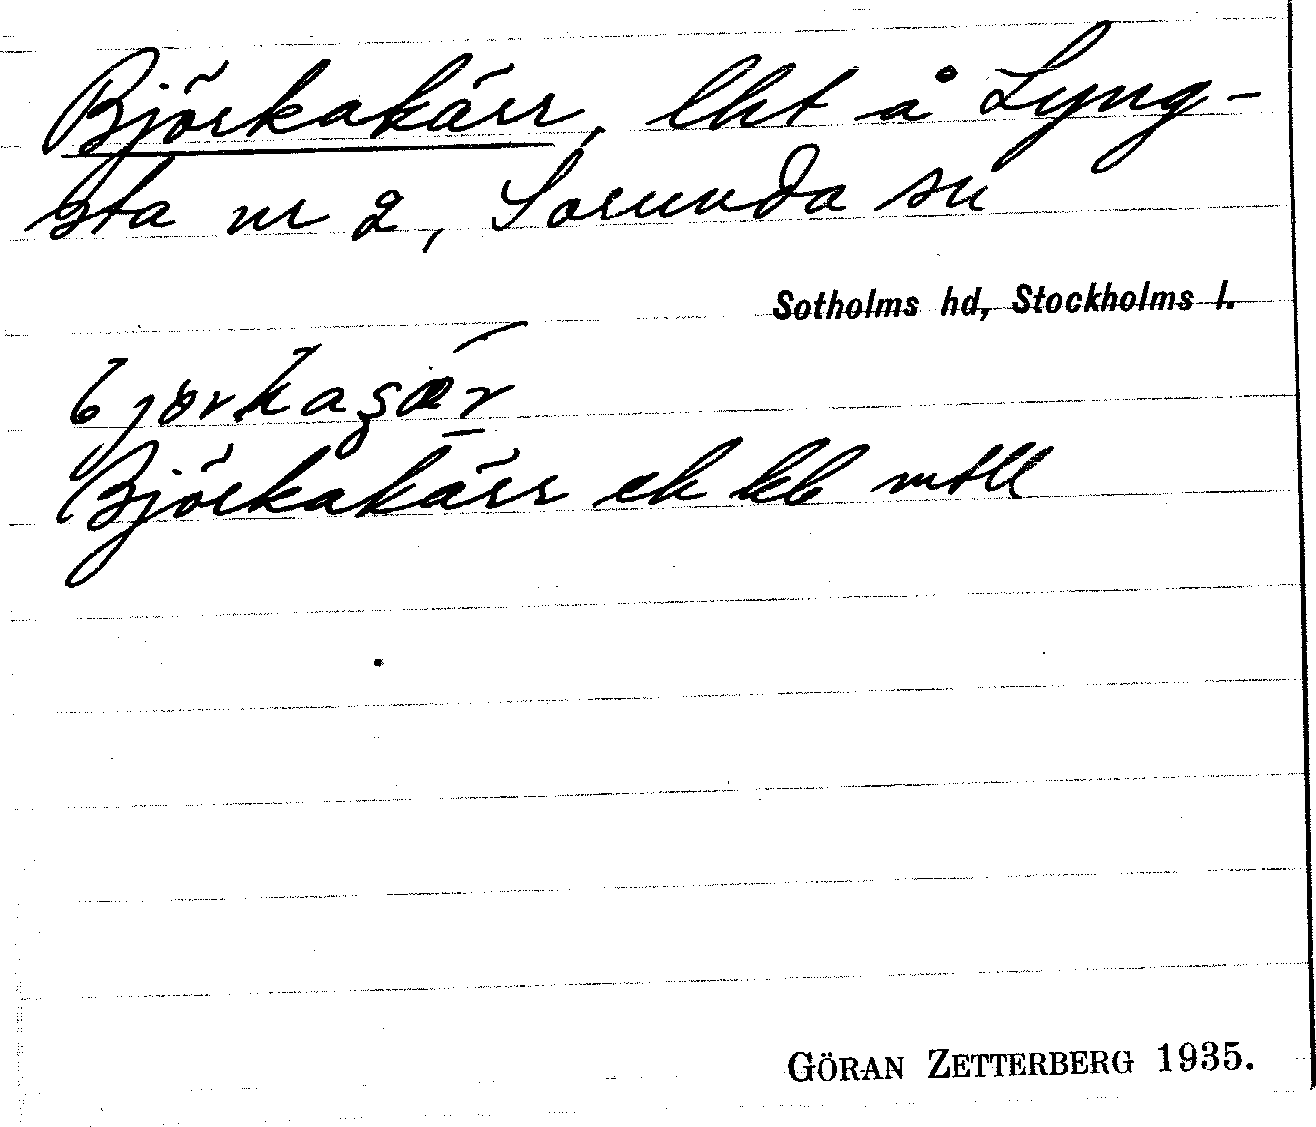 Björkakärr, lht å Lyng-
sta nr 2, Sorunda sn
Sotholms hd, Stockholms l.
Björkakärr ek kb mtll
GÖRAN ZETTERBERG 1935.